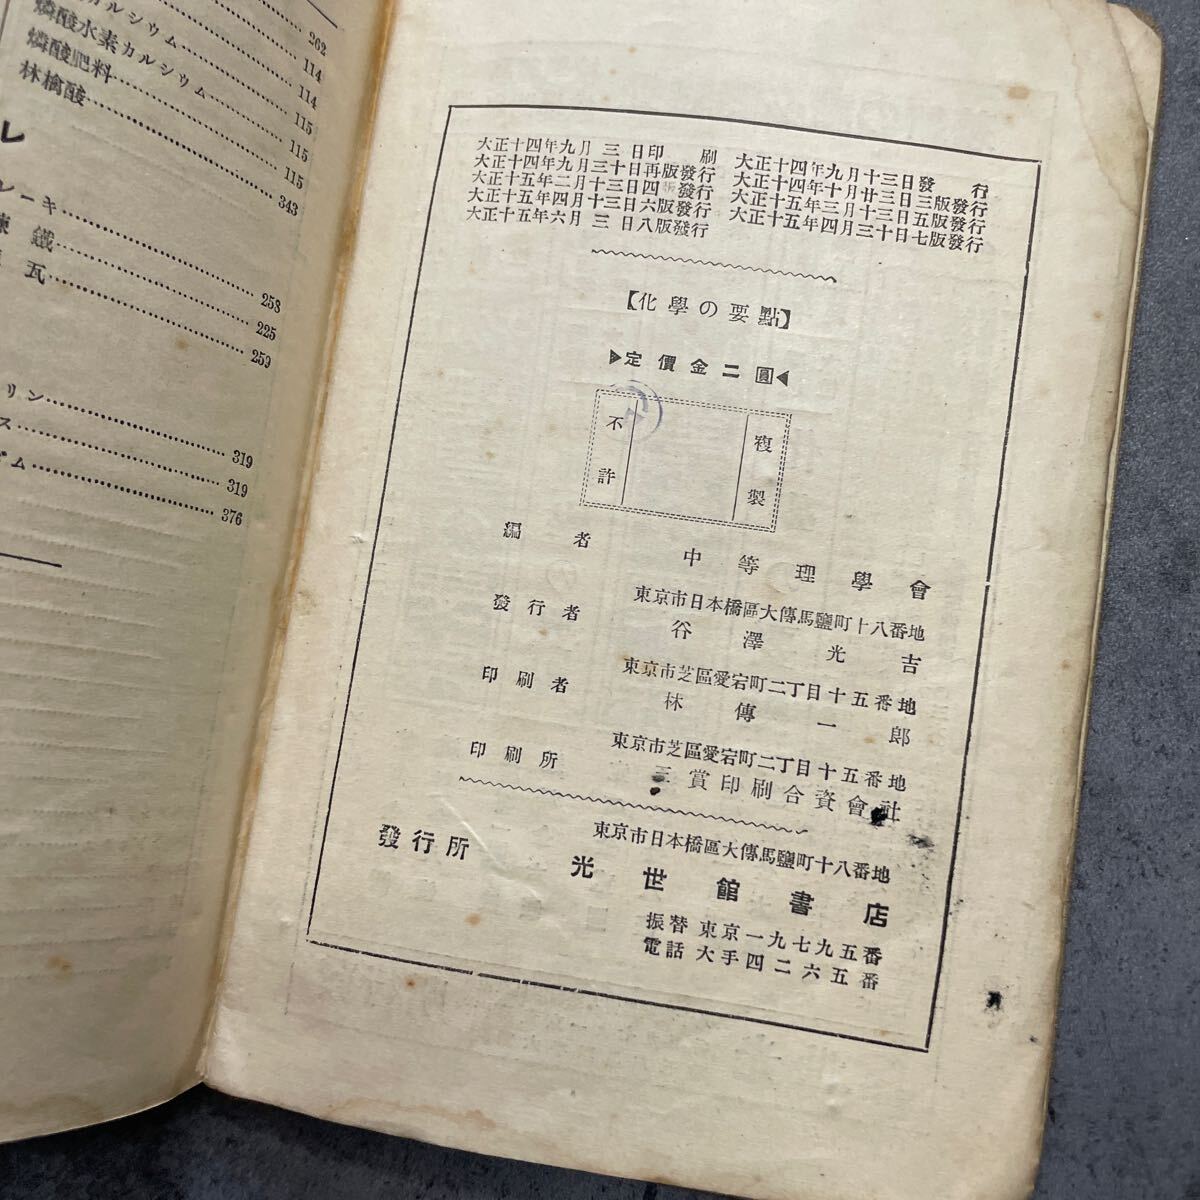 カルシウム……262
燐酸水素カルシウム……114
燐酸肥料……114
林檎酸……115
115
115
343
レ
レーキ……258
鐵……225
瓦……259
リン……319
ス……319
ウム……376
大正十四年九月三日印刷
大正十四年九月十三日發行
大正十四年九月三十日再版發行
大正十四年十月廿三日三版發行
大正十五年二月十三日四版發行
大正十五年三月十三日五版發行
大正十五年四月十三日六版發行
大正十五年四月三十日七版發行
大正十五年六月三日八版發行
【化學の要點】
定價金二圓
不許
複製
編者 中等理學會
東京市日本橋區大傳馬鹽町十八番地
發行者 谷澤光吉
東京市芝區愛宕町二丁目十五番地
印刷者 林傳一郎
東京市芝區愛宕町二丁目十五番地
印刷所 三賞印刷合資會社
東京市日本橋區大傳馬鹽町十八番地
發行所 光世館書店
振替東京一九七九五番
電話大手四二六五番